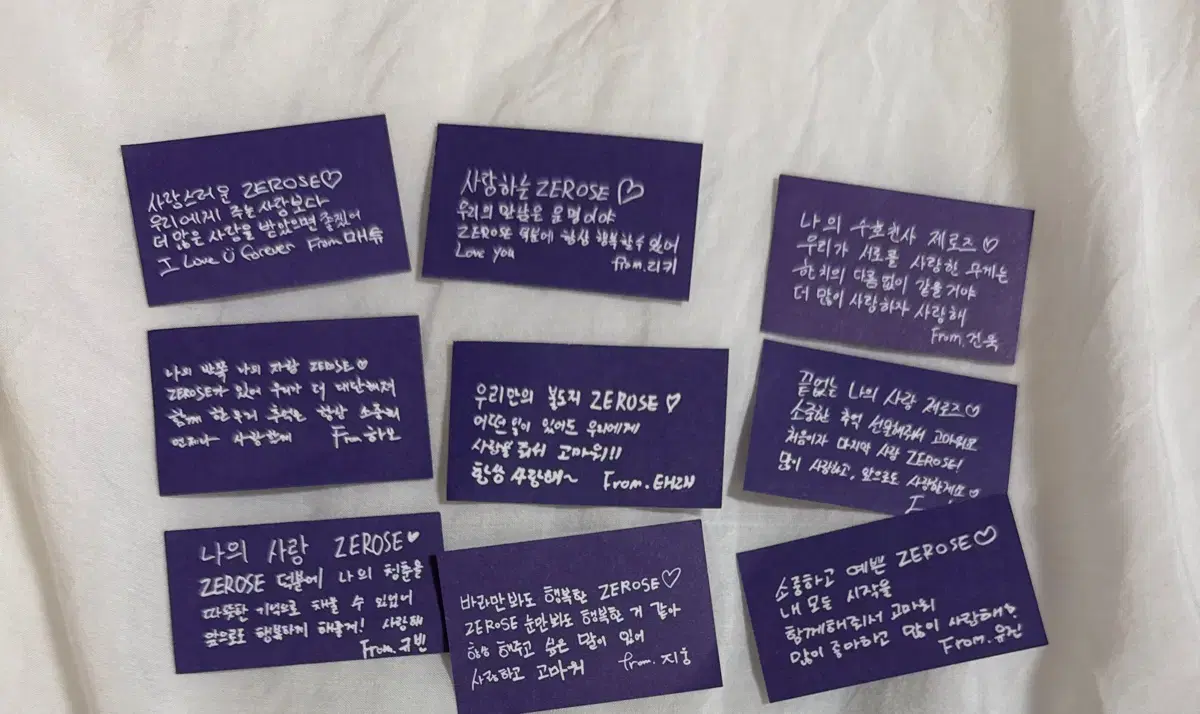 사랑스러운 ZEROSE♡
우리에게 주는 사랑보다
더 많은 사랑을 받았으면 좋겠어
I Love U forever From 매튜
사랑하는 ZEROSE ♡
우리의 만남은 운명이야
ZEROSE 덕분에 항상 행복할 수 있어
Love you
from. 리키
나의 수호천사 제로즈♡
우리가 서로를 사랑한 무게는
한 치의 다름없이 같을거야
더 많이 사랑하자 사랑해
From. 건욱
나의 반쪽 나의 자랑 ZEROSE♡
ZEROSE가 있어 우리가 더 대단해져
함께 한 우리 추억은 항상 소중해
언제나 사랑함께 From 하오
우리만의 보도지 ZEROSE ♡
어떤 일이 있어도 우리에게
사랑을 줘서 고마워!!
항상 사랑해~ From. 태래
끝없는 나의 사랑 제로즈♡
소중한 추억 선물해줘서 고마워요
처음이자 마지막 사랑 ZEROSE!
많이 사랑하고, 앞으로도 사랑할게요♡
나의 사랑 ZEROSE♥
ZEROSE 덕분에 나의 청춘을
따뜻한 기억으로 채울 수 있었어
앞으로도 행복하게 해줄게! 사랑해
From. 규빈
바라만봐도 행복한 ZEROSE♡
ZEROSE 눈만봐도 행복한 거 같아
항상 해주고 싶은 말이 있어
사랑하고 고마워 from. 지웅
소중하고 예쁜 ZEROSE♡
내 모든 시작을
함께해줘서 고마워
많이 좋아하고 많이 사랑해!
From. 유진